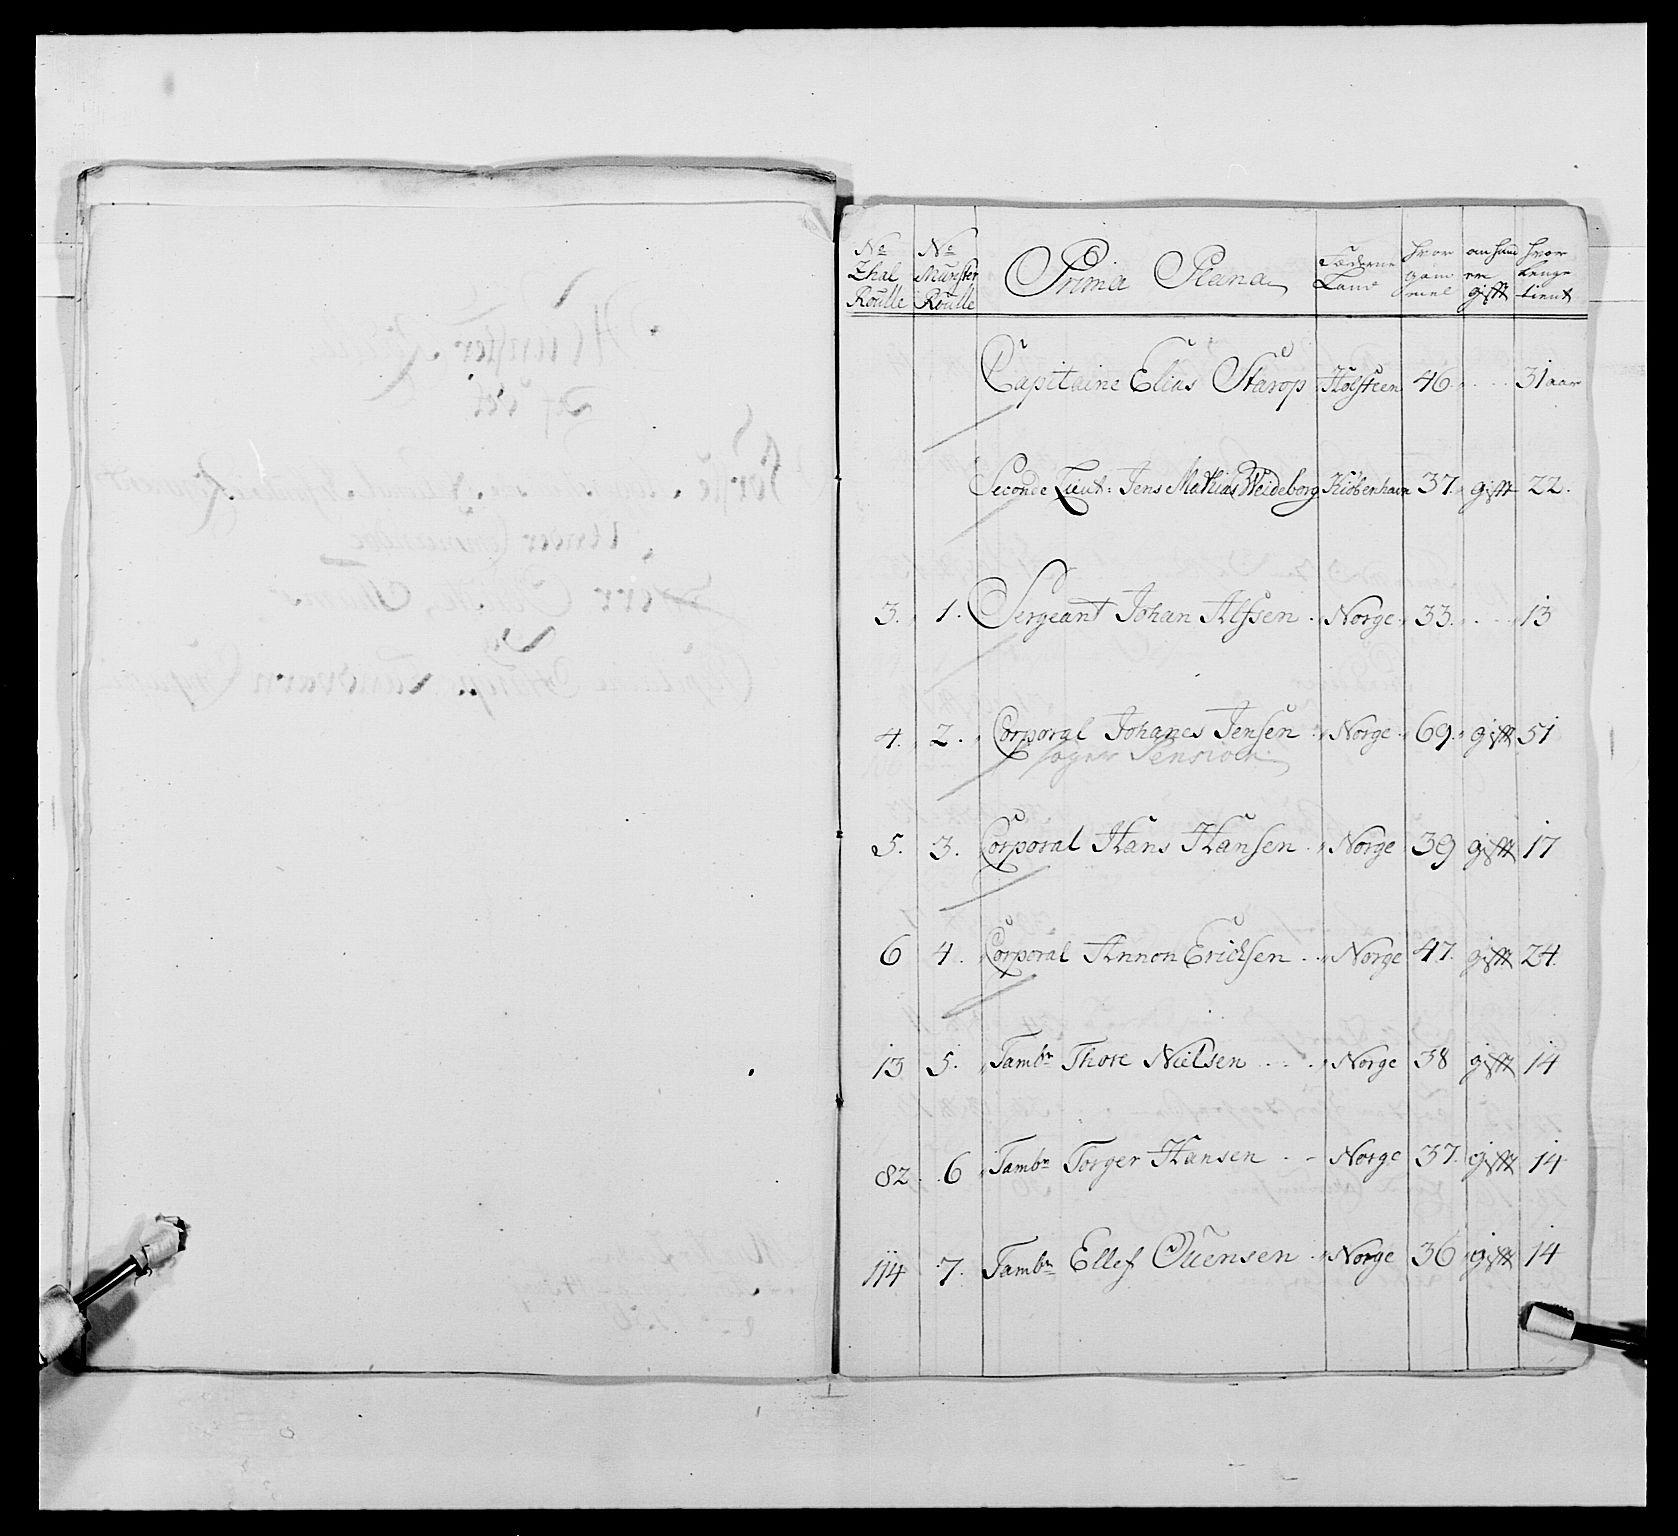 No Zhal Roulle No Munster Roulle Prima Plana Fæderne Land hvor gam mel om hand er gifft hvor lenge tient
Capitaine Elias Starop Holsteen 46. 31 aar
Seconde Lieut: Jens Mathias Weideborg Kiöbenhavn 37. gifft 22.
3. 1. Sergeant Johan Alfsen Norge 33. 13
4. 2. Corporal Johanes Jensen Norge 69. gifft 51
søger Pension
5. 3. Corporal Hans Hansen Norge 39 gifft 17
6 4. Corporal Annon Ericksen Norge 47. gifft 24.
13 5. Tambr Thore Nielsen Norge 38 gifft 14
82 6 Tambr Torger Hansen Norge 37. gifft 14
114 7. Tambr Ellef Ouensen Norge 36 gifft 14